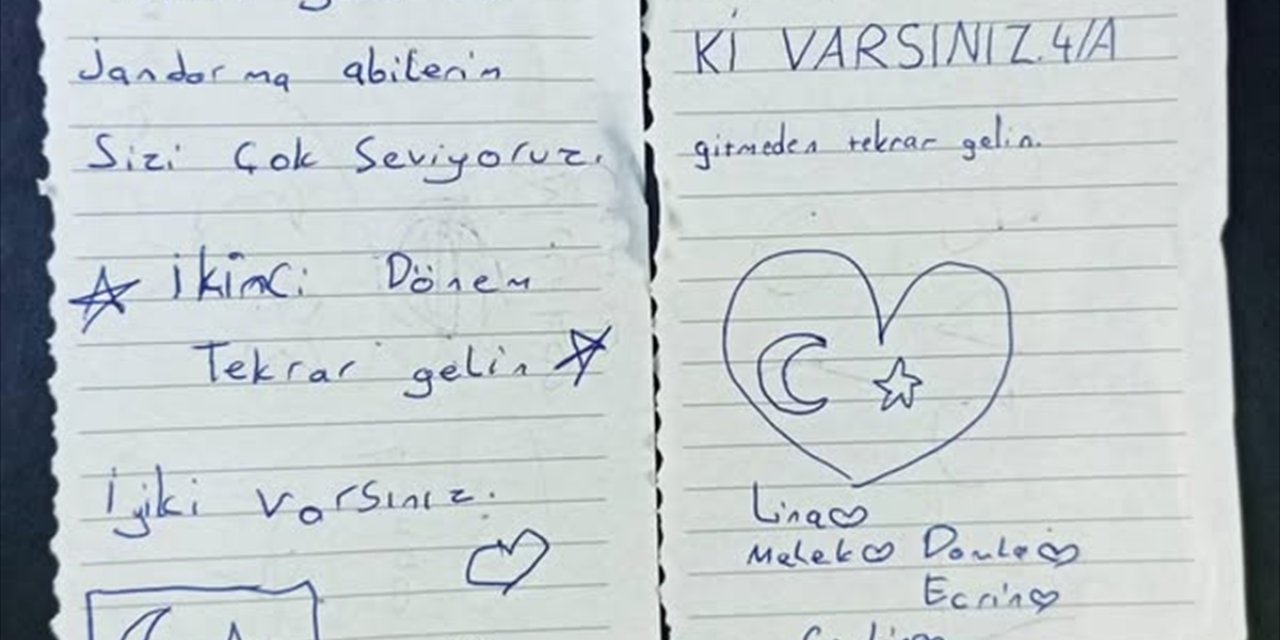 Jandarma abilerim
Sizi Çok Seviyoruz.
İkinci Dönem
Tekrar gelin
İyiki varsınız.
Kİ VARSINIZ. 4/A
gitmeden tekrar gelin.
Lina
Melek Damla
Ecrin